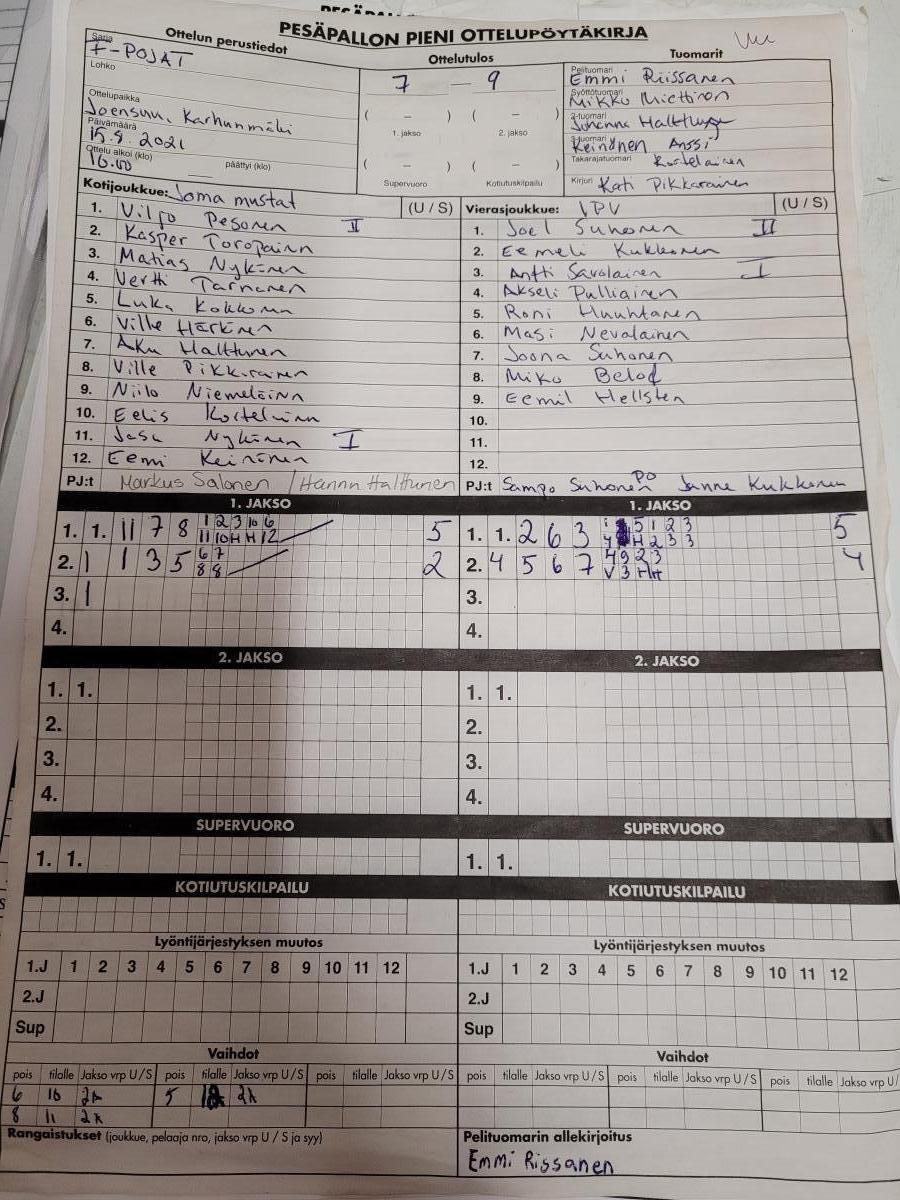 PESÄPALLON PIENI OTTELUPÖYTÄKIRJA
Ottelun perustiedot
Sarja
F-POJAT
Lohko
Ottelupaikka
Joensuu, Karhunmäki
Päivämäärä
15.8.2021
Ottelu alkoi (klo) päättyi (klo)
16.00
Ottelutulos
7 — 9
( – ) ( – )
1. jakso 2. jakso
( – ) ( – )
Supervuoro Kotiutuskilpailu
Tuomarit
Pelituomari
Emmi Riissanen
Syöttötuomari
Mikko Miettinen
2-tuomari
Johanna
3-tuomari
Keinänen Anssi
Takarajatuomari Kortelainen
Kirjuri Kati Pikkarainen
Kotijoukkue: Joma mustat (U / S)
1. Viljo Pesonen II
2. Kasper Toropainn
3. Matias Nykänen
4. Vertti Tarnanen
5. Luka Kokkonen
6. Ville Härkönen
7. Aku Halttunen
8. Ville Pikkarainen
9. Niilo Niemeläinn
10. Eelis Kortelainn
11. Jasu Nykänen I
12. Eemi Keinänen
PJ:t Markus Salonen / Hannu Halttunen
Vierasjoukkue: IPV (U / S)
1. Joel Suhonen II
2. Eemeli Kukkonen
3. Antti Savolainen I
4. Akseli Pulliainen
5. Roni Huuhtanen
6. Masi Nevalainen
7. Joona Suhonen
8. Miko Belod
9. Eemil Hellsten
10.
11.
12.
PJ:t Sampo Suhonen PO Janne Kukkonen
1. JAKSO
1. 1. 11 7 8 1 2 3 10 6 5
11 10 H H 12
2. 1 1 3 5 6 7 2
8 8
3. 1
4.
1. JAKSO
1. 1. 2 6 3 5 1 2 3 5
4 H 2 3 3
2. 4 5 6 7 4 9 2 3 4
V 3 H H
3.
4.
2. JAKSO
1. 1.
2.
3.
4.
2. JAKSO
1. 1.
2.
3.
4.
SUPERVUORO
1. 1.
SUPERVUORO
1. 1.
KOTIUTUSKILPAILU
KOTIUTUSKILPAILU
Lyöntijärjestyksen muutos
1.J 1 2 3 4 5 6 7 8 9 10 11 12
2.J
Sup
Lyöntijärjestyksen muutos
1.J 1 2 3 4 5 6 7 8 9 10 11 12
2.J
Sup
Vaihdot
pois tilalle Jakso vrp U / S pois tilalle Jakso vrp U / S pois tilalle Jakso vrp U / S
6 10 2A 5 2A
8 11 2A
Vaihdot
pois tilalle Jakso vrp U / S pois tilalle Jakso vrp U / S pois tilalle Jakso vrp U/
Rangaistukset (joukkue, pelaaja nro, jakso vrp U / S ja syy)
Pelituomarin allekirjoitus
Emmi Rissanen